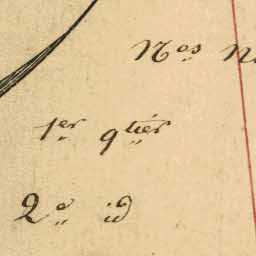 Nos
1er qtier
2e id